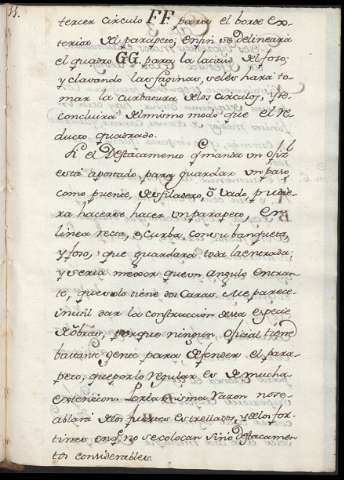 tercer circulo FF para el borde ex-
terior del parapeto, en fin se delineará
el quarto GG, para la lacnu del foso;
y clavando las faginas, se les hará to-
mar la curbatura de los circulos, y se
concluirá del mismo modo que el Re-
ducto quadrado.
el Destacamento q.e manda un Ofiz.l
está apostado para guardar un paso,
como puente, desfiladero, ó Vado, pudie-
ra hacerse hacer un parapeto, en
linea recta, ó curba, con su banqueta,
y foso, que guardará toda la entrada;
y seria mejor que un Angulo Entran-
te, que solo tiene dos Caras. Me parece
inutil dar la construccion de esta especie
de obras, porque ningun Oficial tiene
bastante gente para defender el para-
peto, que por lo regular es de mucha
extencion. Por la misma razon no se
ablará de los fuertes estrellados, y de los for-
tines en q.e no se colocan sino Destacamen-
tos considerables.